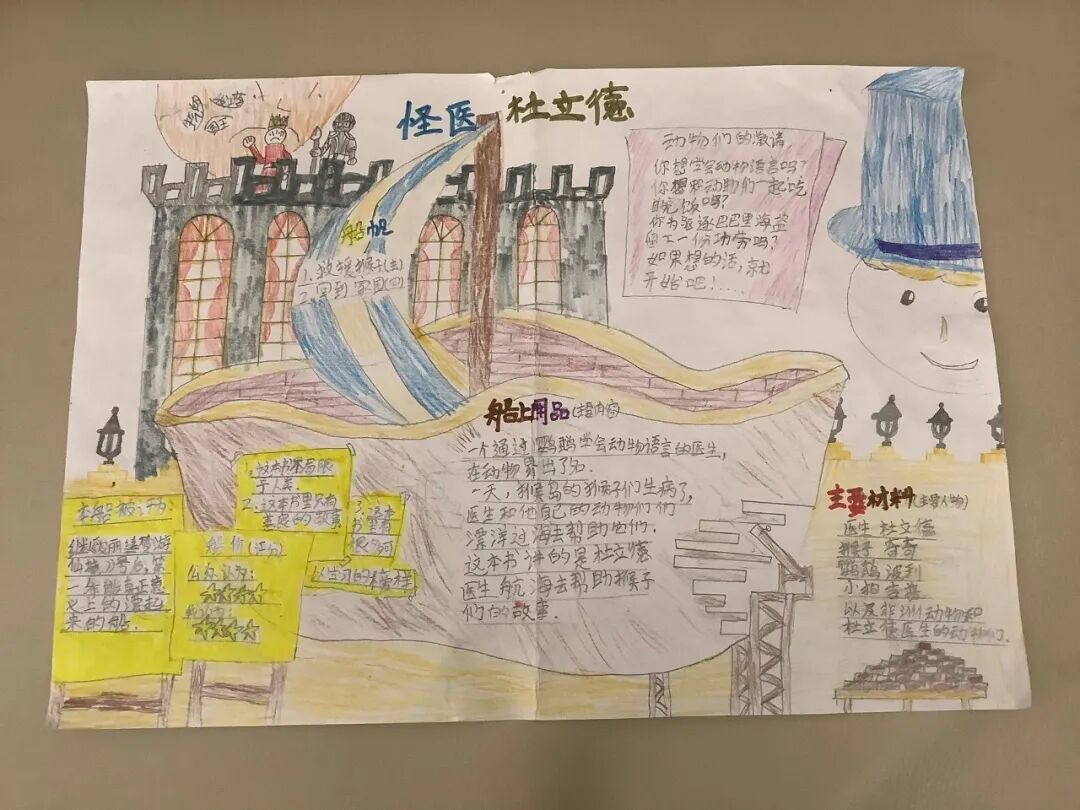 怪医 杜立德
国王
动物们的邀请
你想学会动物语言吗?
你想和动物们一起吃
晚饭吗?
你为驱逐巴巴里海盗
留下一份功劳吗?
如果想的话,就
开始吧!.....
船帆
1.救援猴子(去)
2.回到家园(回)
船上用品(主要内容)
一个通过鹦鹉学会动物语言的医生,
在动物界出了名.
一天,猴岛的猴子们生病了,
医生和他自己的动物们们
漂洋过海去帮助它们.
这本书讲的是杜立德
医生航海去帮助猴子
们的故事.
1.这本书不局限
于人类.
2.这本书里只有
善良的故事
3.这本
书里有
很多可
以学习的
本船被评为
继
仙境
一条能真正意
义上的漂起
来的船.
船价(评分)
公众认为:
☆☆☆☆☆
我认为:
☆☆☆☆☆
主要材料(主要人物)
医生 杜立德
猴子 奇奇
鹦鹉 波利
小狗 吉普
以及非洲动物和
杜立德医生的动物们.